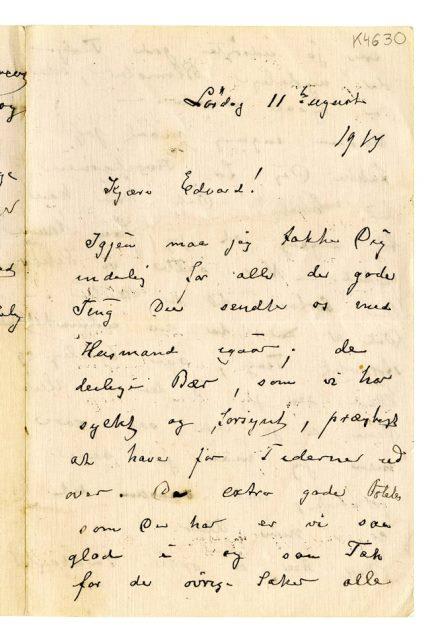 K4630
Lördag 11 August
1917
Kjære Edvard!
Igjen maa jeg takke Dig
indelig for alle de gode
Ting Du sendte os med
igaar; de
deilige Bær, som vi har
syltet og, prægtigt
at have for Tiderne ud
over. De extra gode Poteter
som Du har er vi saa
glad i og saa Tak
for de övrige Saker alle